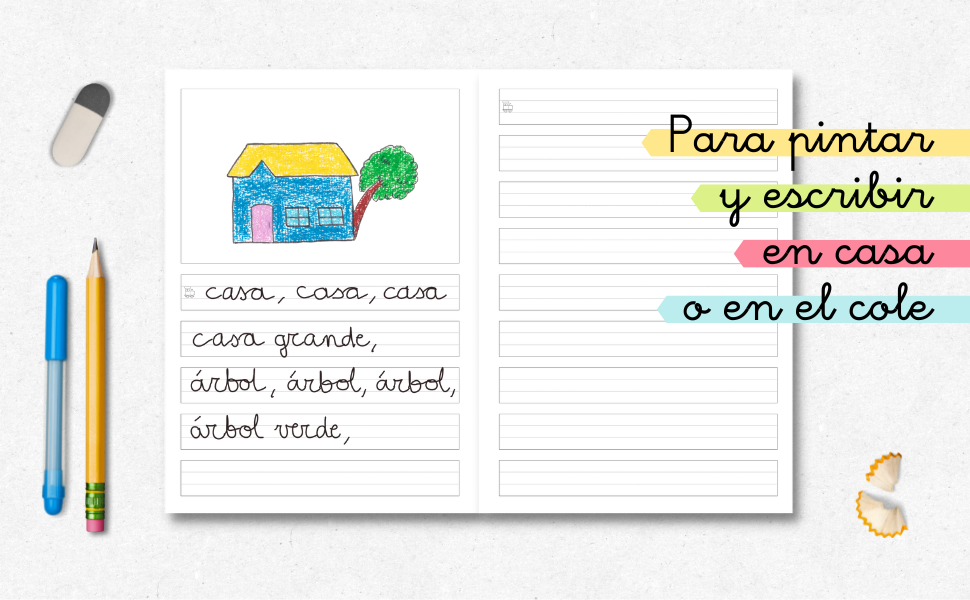 casa, casa, casa
casa grande,
árbol, árbol, árbol,
árbol verde,
Para pintar
y escribir
en casa
o en el cole